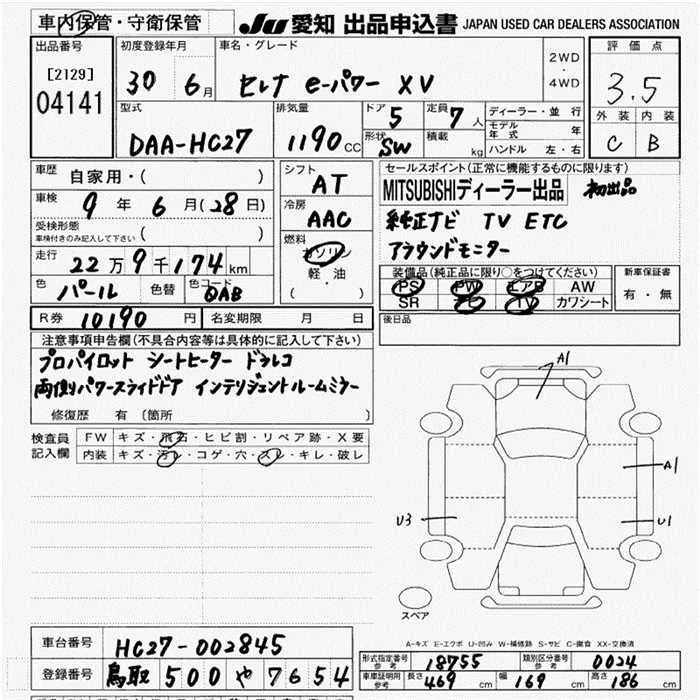 車内保管・守衛保管
JU 愛知 出品申込書 JAPAN USED CAR DEALERS ASSOCIATION
出品番号
[2129]
04141
初度登録年月
30 6月
車名・グレード
セレナ e-パワー XV
2WD
・
4WD
評価点
3.5
外装 内装
C B
型式
DAA-HC27
排気量
1190 CC
ドア 5
定員 7人
形状 SW
積載 kg
ディーラー・並行
モデル年式 年
ハンドル 左・右
車歴 自家用・( )
車検 9年 6月(28日)
受検形態
車検付きのみ記入して下さい ( )
走行 22万9千174km
色 パール 色替 色コード QAB
シフト AT
冷房 AAC
燃料
ガソリン
軽・油
( )
セールスポイント(正常に機能するものに限ります)
MITSUBISHIディーラー出品 初出品
純正ナビ TV ETC
アラウンドモニター
装備品(純正品に限り○をつけてください)
PS PW エアB AW
SR TV カワシート
新車保証書
有・無
R券 10190円 名変期限 月 日
後日品
注意事項申告欄(不具合内容等は具体的に記入して下さい)
プロパイロット シートヒーター ドラレコ
両側パワースライドドア インテリジェントルームミラー
修復歴 有 〔箇所 〕
検査員記入欄
FW キズ・飛石・ヒビ割・リペア跡・X要
内装 キズ・汚レ・コゲ・穴・スレ・キレ・破レ
A1
A1
U3
U1
スペア
A-キズ E-エクボ U-凹み W-補修跡 S-サビ C-腐食 XX-交換済
車台番号 HC27-002845
登録番号 鳥取 500 や 7654
形式指定番号 参考 18755 類別区分番号 参考 0024
車庫証明用 参考 長さ 469 cm 幅 169 cm 高さ 186 cm